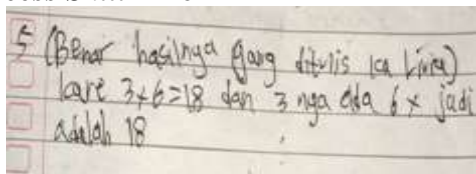 5 (Benar hasilnya yang ditulis ka Livia)
kare 3x6=18 dan 3 nya ada 6 x jadi
adalah 18